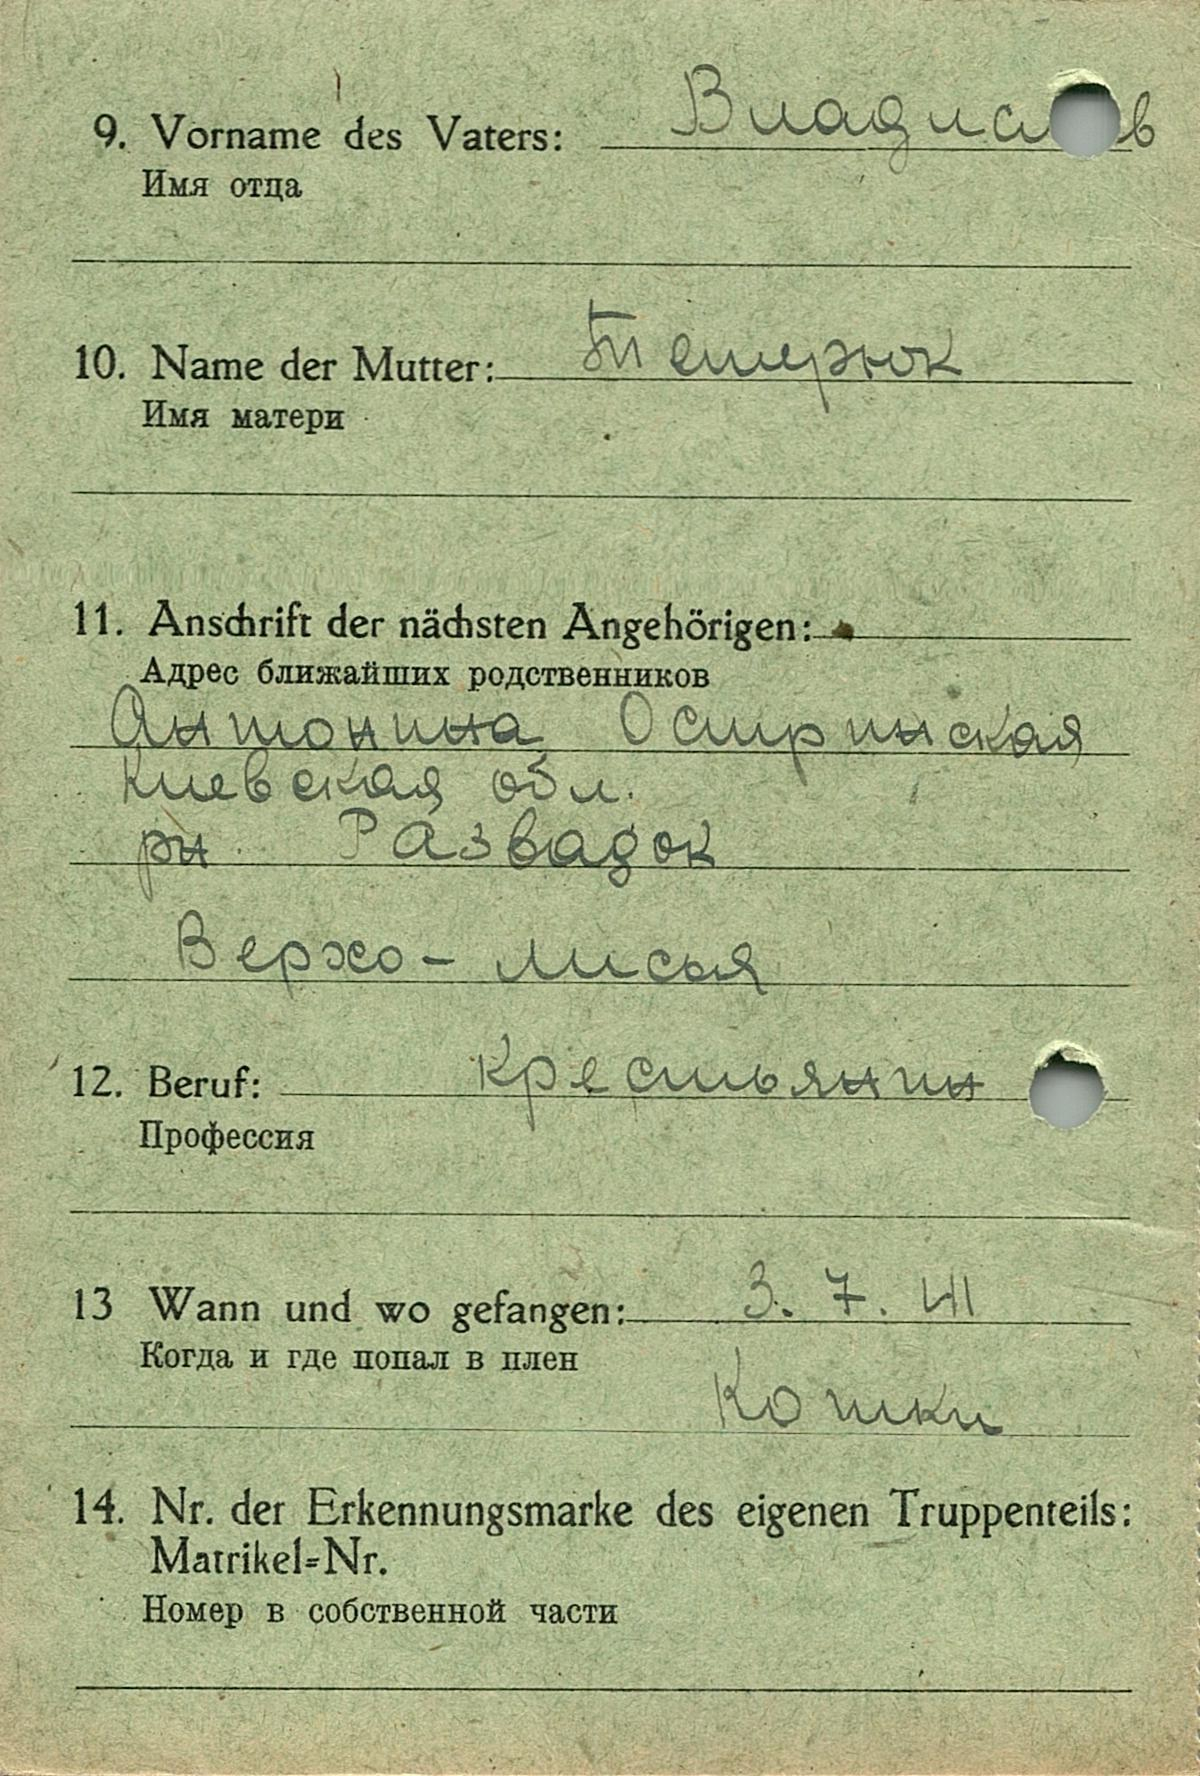 9. Vorname des Vaters:
Имя отца
10. Name der Mutter: Тетерюк
Имя матери
11. Anschrift der nächsten Angehörigen:
Адрес ближайших родственников
Антонина Остринская
Киевская обл.
рн Развадок
Верхо - лисья
12. Beruf: крестьянин
Профессия
13 Wann und wo gefangen: 3. 7. 41
Когда и где попал в плен
Кошки
14. Nr. der Erkennungsmarke des eigenen Truppenteils:
Matrikel=Nr.
Номер в собственной части